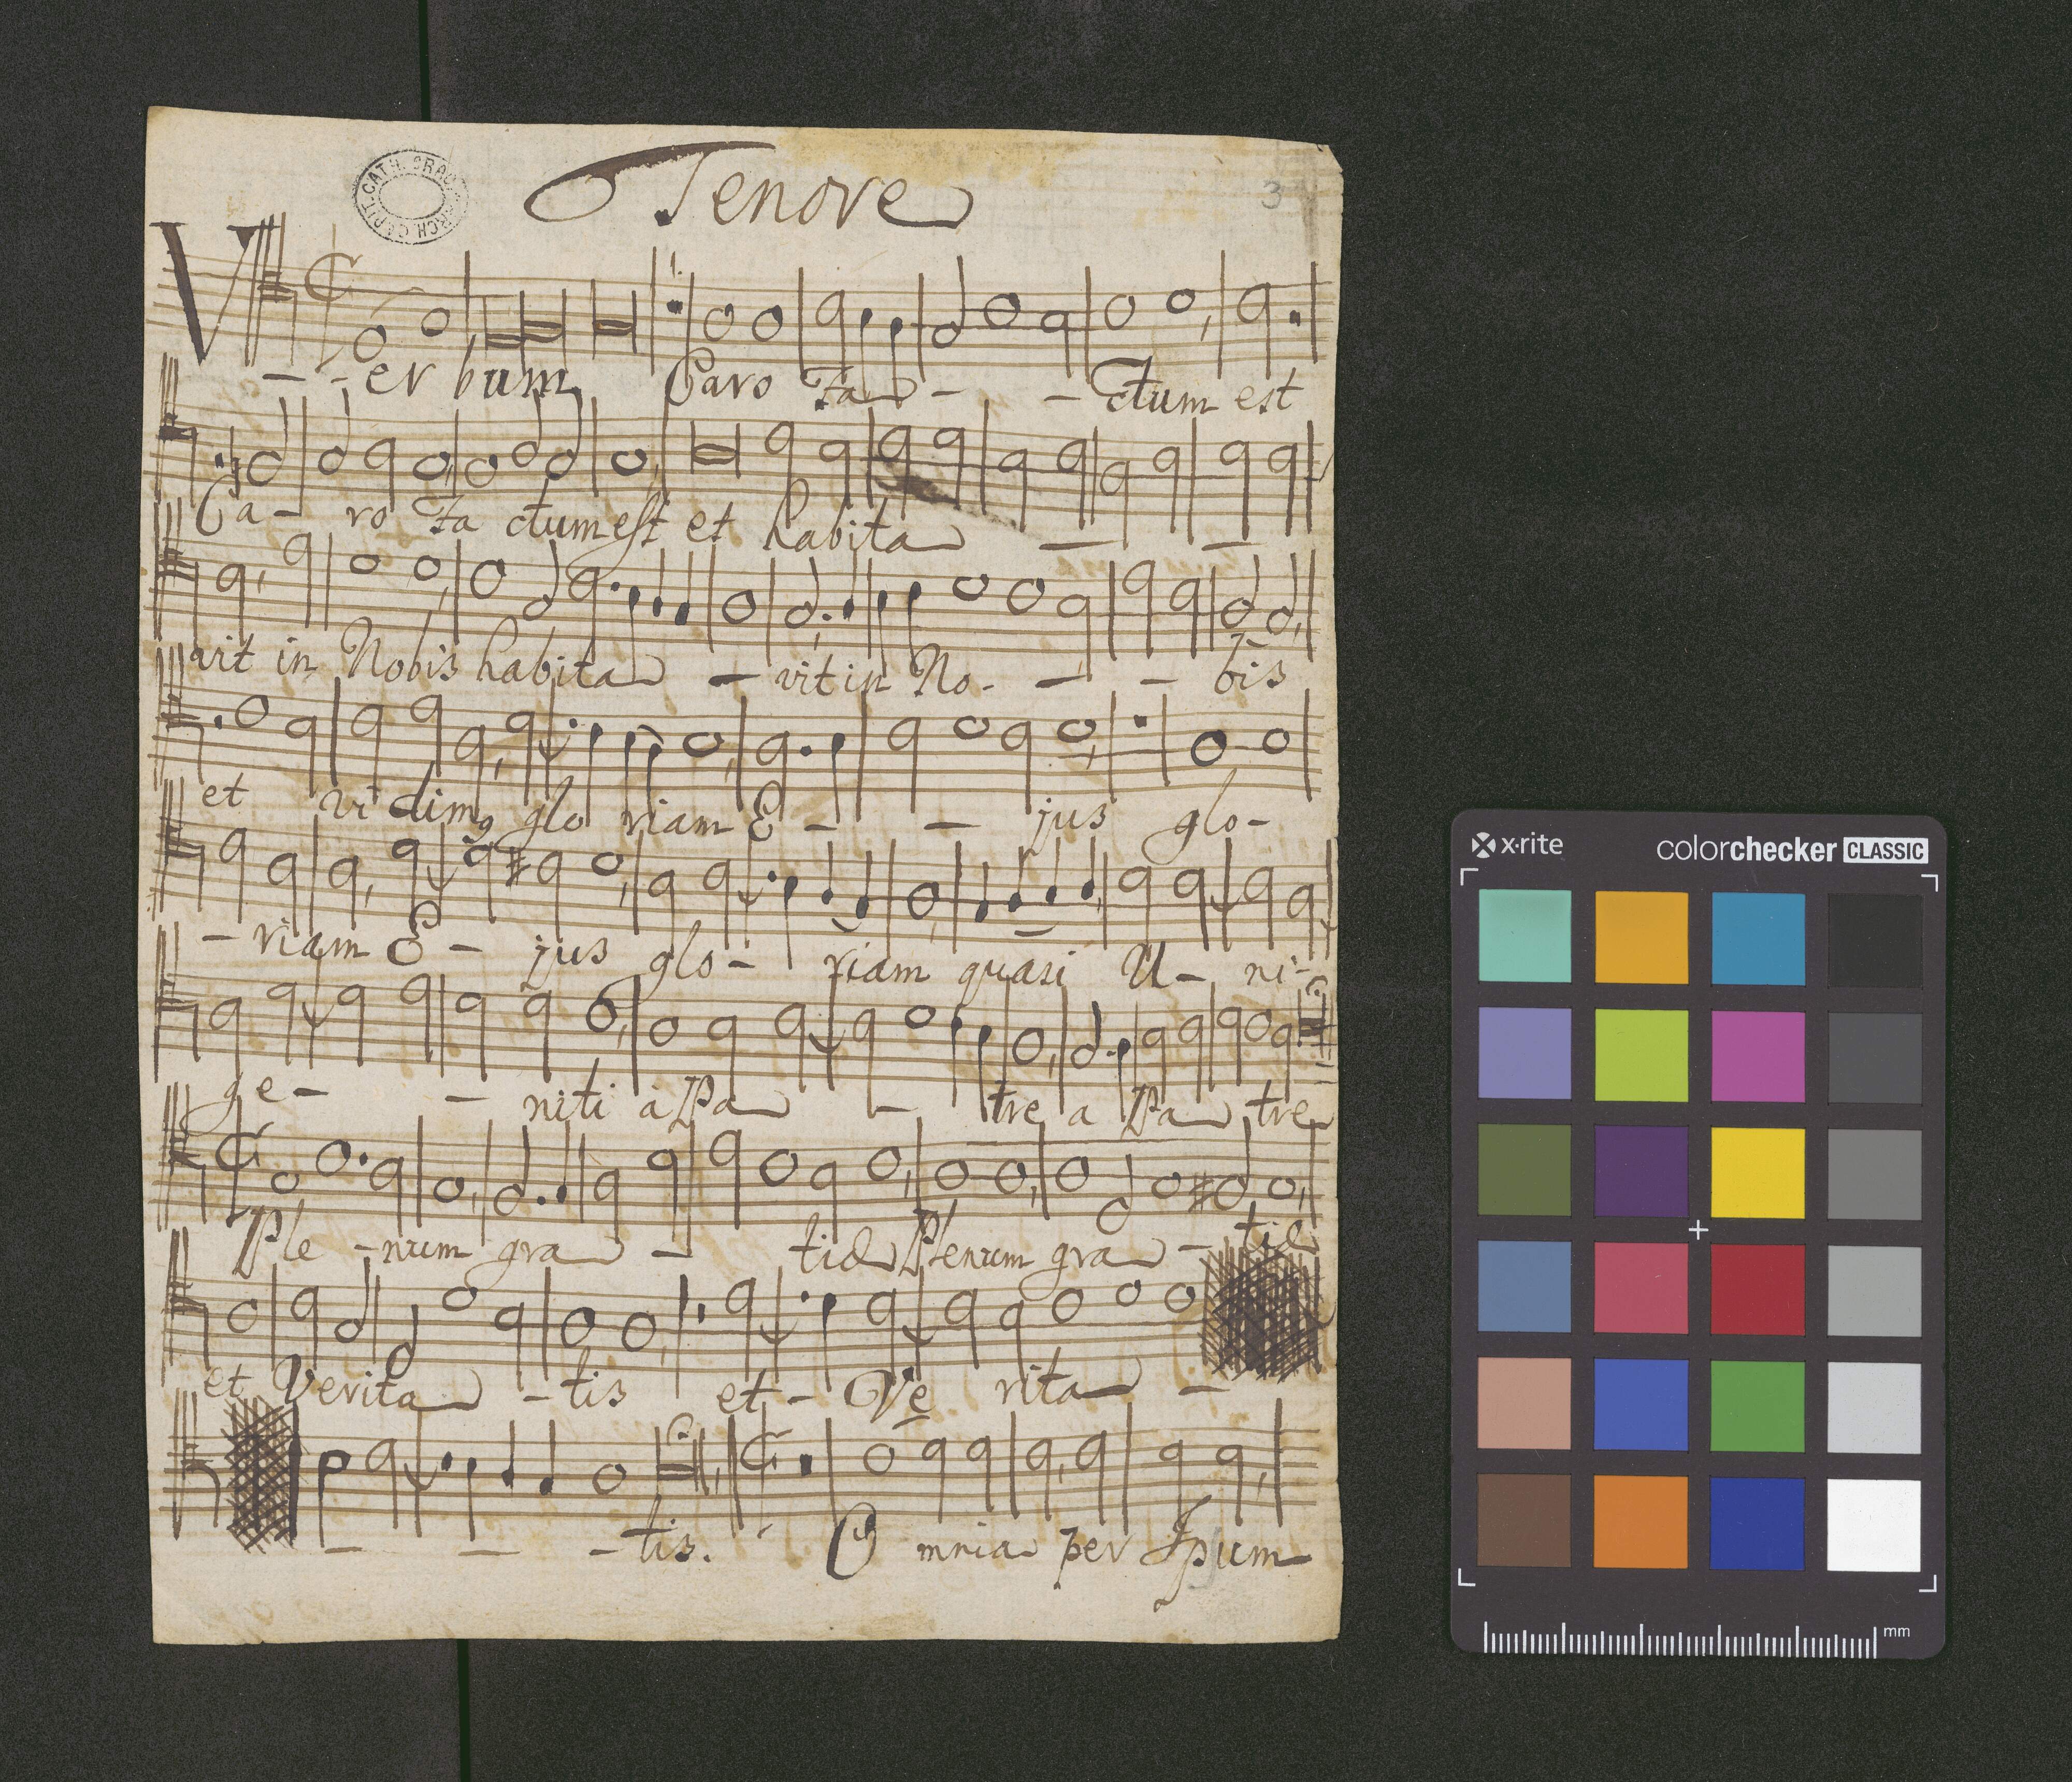 Tenore
3
V - - er bum Caro Fa - - ctum est
Ca - ro Fa ctum est et habita - -
vit in Nobis habita - vit in No - - - bis
et vi dimꝰ glo riam E - - jus glo -
- riam E - jus glo - riam quasi U - ni -
ge - - niti a Pa - tre a Pa tre
Ple - num gra - tiæ Plenum gra - tiæ
et Verita - tis et - Ve rita -
- - - tis. O mnia per Ipsum
x·rite colorchecker CLASSIC
mm